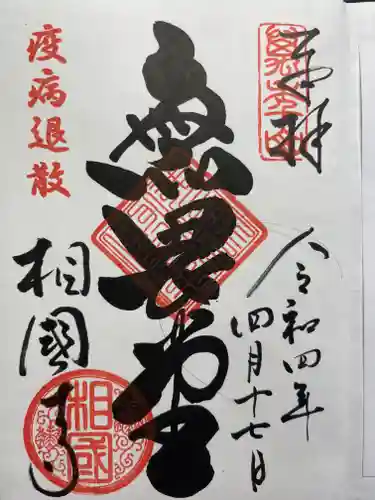 奉拝
令和四年
四月十七日
無畏堂
疫病退散
相國寺
相國